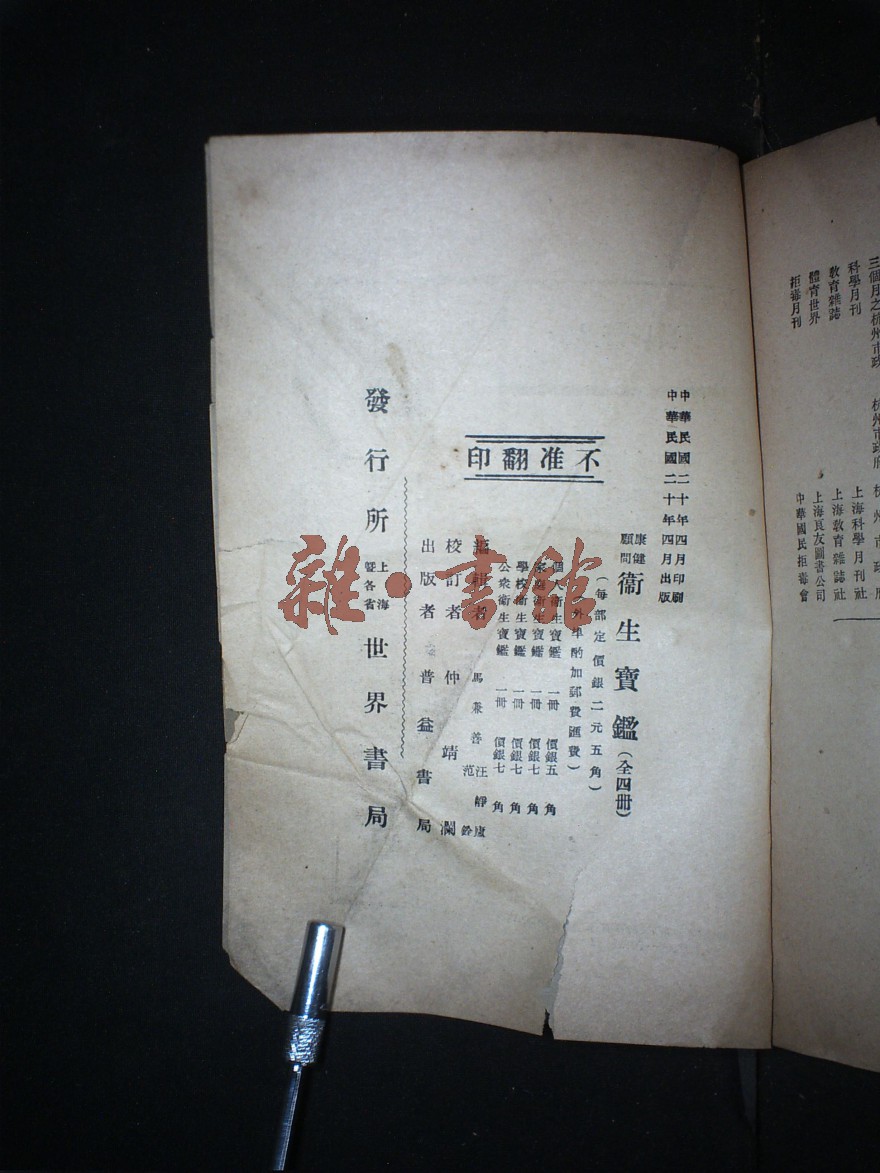 三個月之杭州市政 杭州市政府
科學月刊 上海科學月刊社
教育雜誌 上海教育雜誌社
體育世界 上海良友圖書公司
拒毒月刊 中華國民拒毒會
杭州市政府
中華民國二十年四月印刷
中華民國二十年四月出版
康健顧問 衞生寶鑑(全四冊)
(每部定價銀二元五角)
(外埠酌加郵費匯費)
個人衞生寶鑑 一冊 價銀五角
家庭衞生寶鑑 一冊 價銀七角
學校衞生寶鑑 一冊 價銀七角
公衆衞生寶鑑 一冊 價銀七角
不准翻印
編輯者 馬兼善 汪靜虛 范銓
校訂者 仲靖瀾
出版者 普益書局
發行所 上海暨各省 世界書局
雜·書館